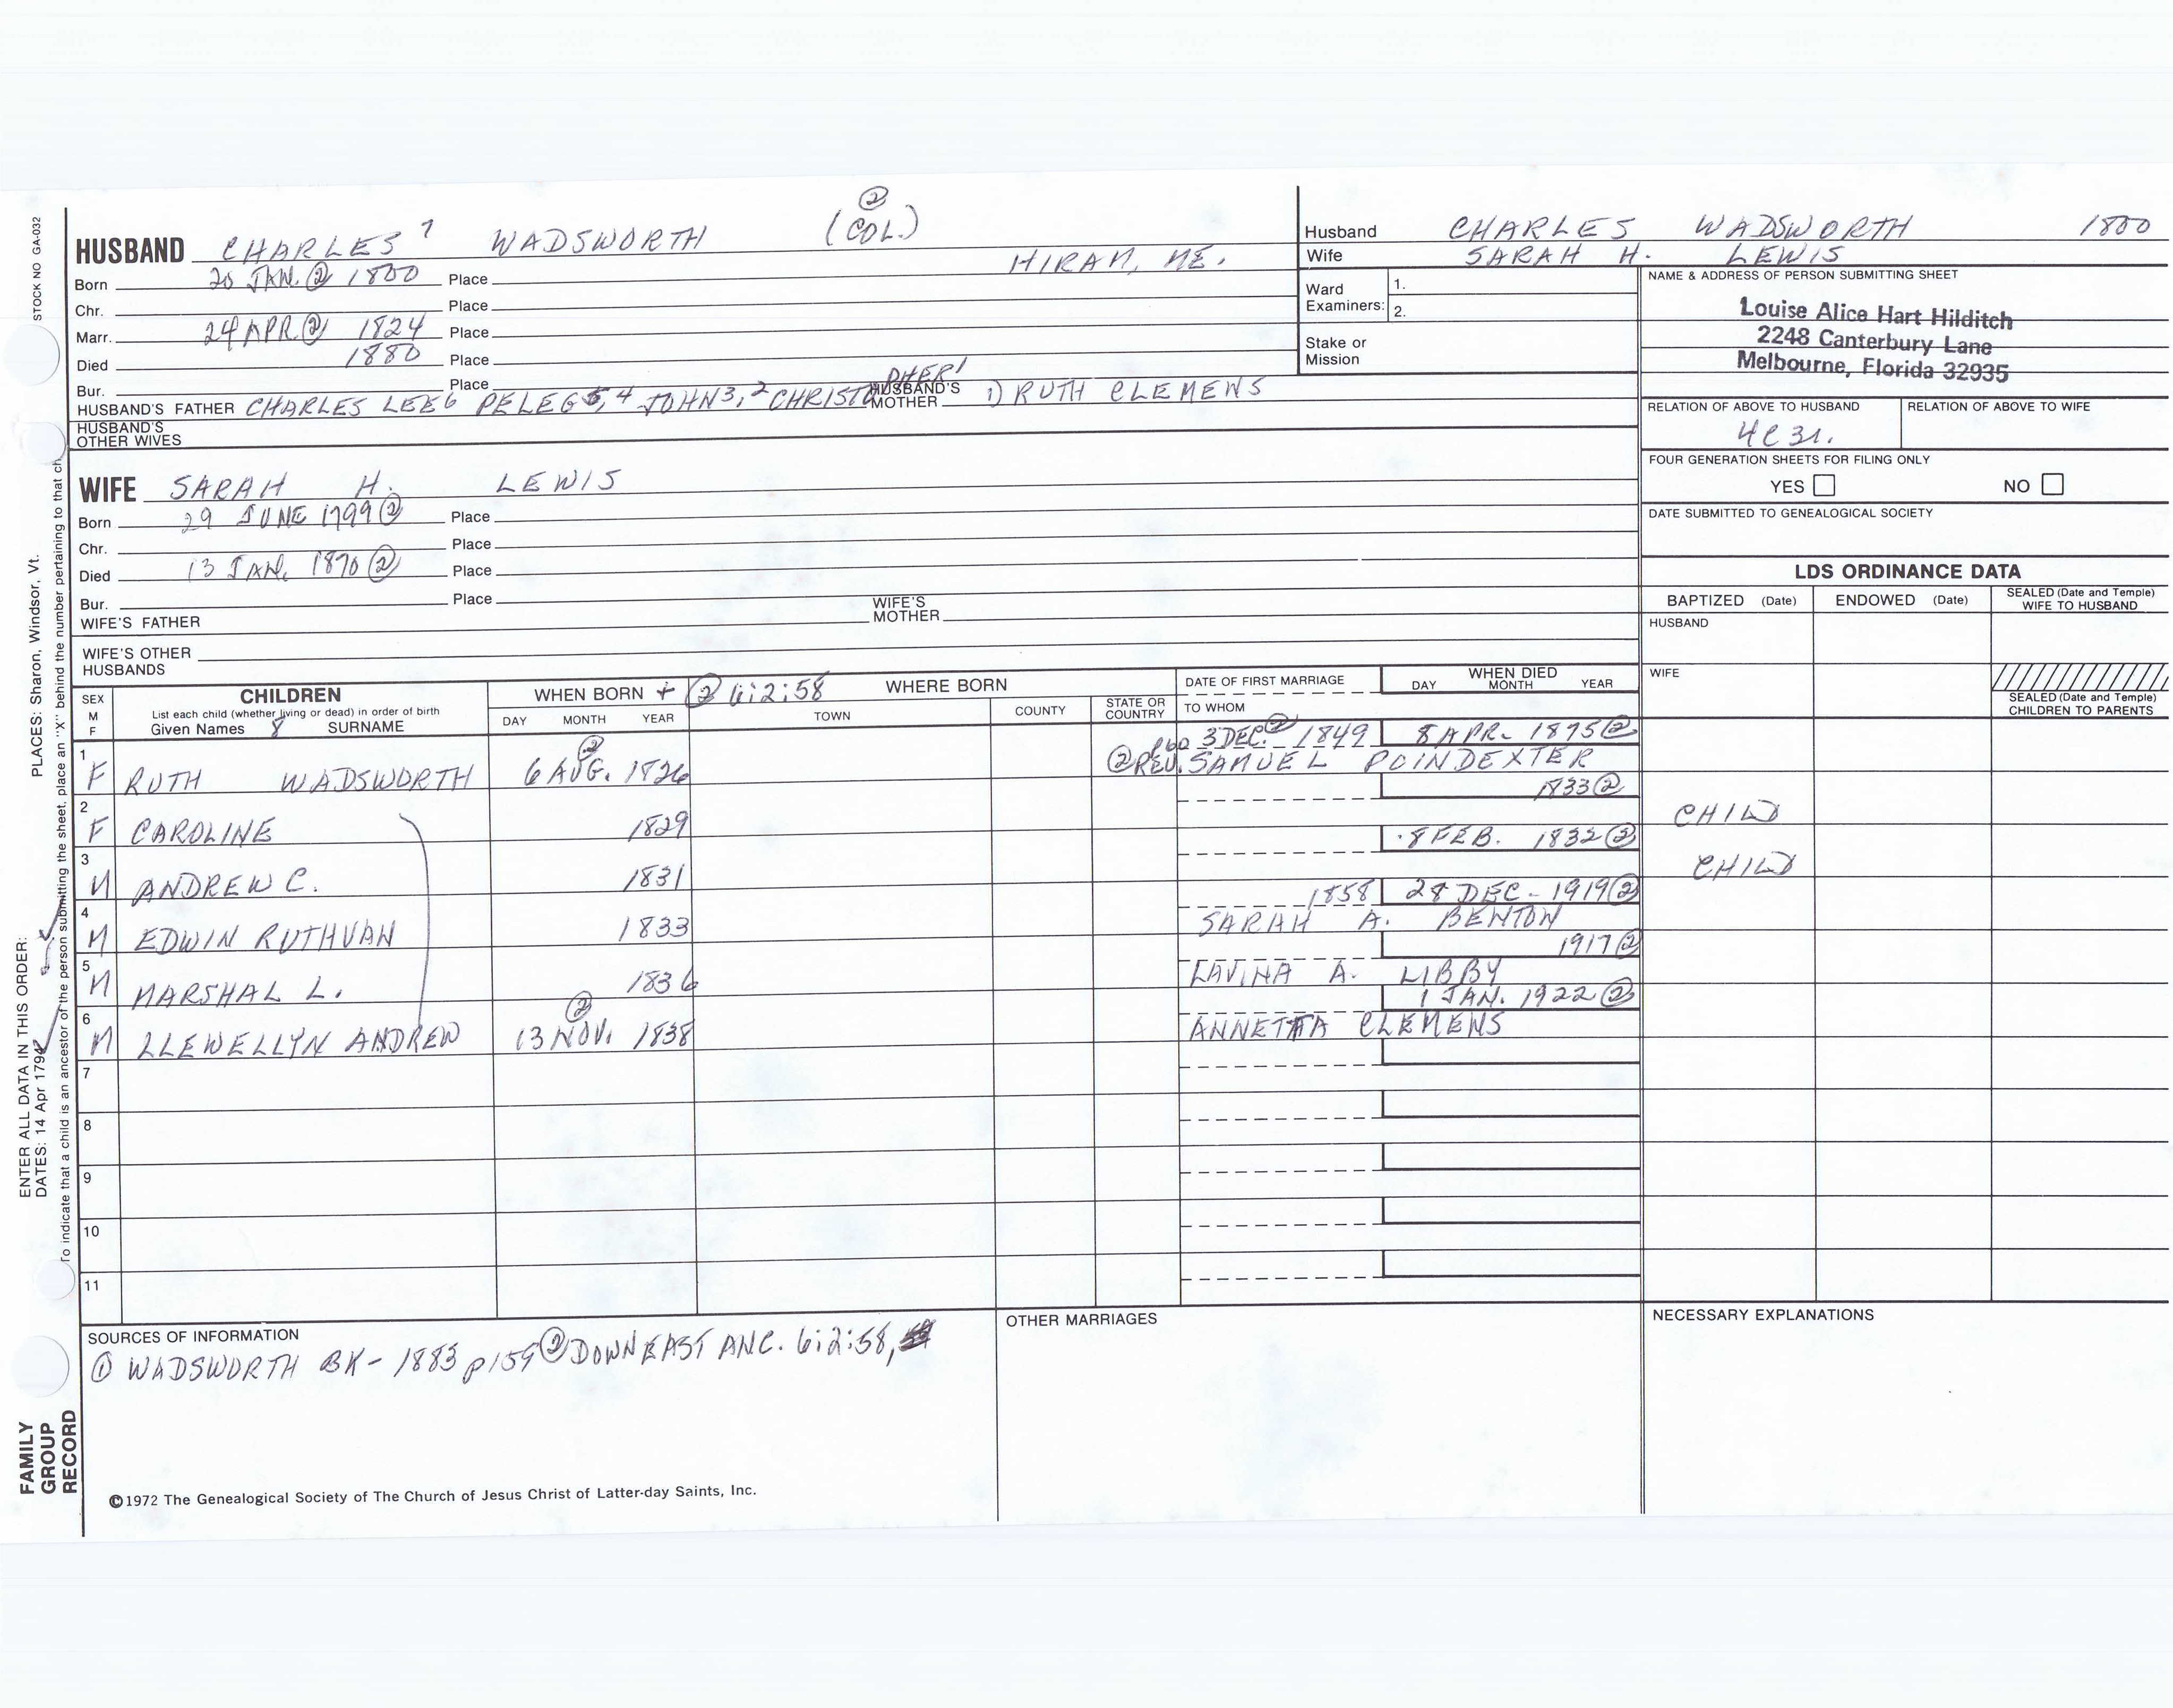 STOCK NO GA-032
PLACES: Sharon, Windsor, Vt.
ENTER ALL DATA IN THIS ORDER:
DATES: 14 Apr 1794
To indicate that a child is an ancestor of the person submitting the sheet, place an "X" behind the number pertaining to that ch
FAMILY
GROUP
RECORD
②
HUSBAND CHARLES 7 WADSWORTH (COL.)
HIRAM, ME.
Born 20 JAN. ② 1800 Place
Chr. Place
Marr. 24 APR ② 1824 Place
Died 1880 Place
Bur. Place
HUSBAND'S FATHER CHARLES LEE6 PELEG5,4 JOHN3,2 CHRISTOPHER1 HUSBAND'S MOTHER 1) RUTH CLEMENS
HUSBAND'S
OTHER WIVES
Husband CHARLES WADSWORTH 1800
Wife SARAH H. LEWIS
Ward
Examiners:
1.
2.
Stake or
Mission
NAME & ADDRESS OF PERSON SUBMITTING SHEET
Louise Alice Hart Hilditch
2248 Canterbury Lane
Melbourne, Florida 32935
RELATION OF ABOVE TO HUSBAND RELATION OF ABOVE TO WIFE
FOUR GENERATION SHEETS FOR FILING ONLY
YES NO
DATE SUBMITTED TO GENEALOGICAL SOCIETY
WIFE SARAH H. LEWIS
Born 29 JUNE 1799 ② Place
Chr. Place
Died 13 JAN. 1870 ② Place
Bur. Place
WIFE'S FATHER WIFE'S MOTHER
WIFE'S OTHER
HUSBANDS
LDS ORDINANCE DATA
BAPTIZED (Date) ENDOWED (Date) SEALED (Date and Temple) WIFE TO HUSBAND
HUSBAND
WIFE
SEALED (Date and Temple)
CHILDREN TO PARENTS
SEX
M
F
CHILDREN
List each child (whether living or dead) in order of birth
Given Names 8 SURNAME
WHEN BORN + ② 6:2:58
DAY MONTH YEAR
WHERE BORN
TOWN COUNTY STATE OR COUNTRY
DATE OF FIRST MARRIAGE
TO WHOM
WHEN DIED
DAY MONTH YEAR
1 F RUTH WADSWORTH 6 AUG. ② 1826 3 DEC. ② 1849 8 APR- 1895 ②
② REV. SAMUEL POINDEXTER
2 F CAROLINE 1829 1833 ② CHILD
3 M ANDREW C. 1831 8 FEB. 1832 ② CHILD
4 M EDWIN RUTHVAN 1833 1858 28 DEC- 1919 ②
SARAH A. BENTON
5 M MARSHAL L. 1836 1917 ②
LAVINA A. LIBBY
6 M LLEWELLYN ANDREW 13 NOV. ② 1838 1 JAN. 1922 ②
ANNETTA CLEMENS
7
8
9
10
11
SOURCES OF INFORMATION
① WADSWORTH BK- 1883 p159 ② DOWN EAST ANC. 6:2:58,
OTHER MARRIAGES
NECESSARY EXPLANATIONS
©1972 The Genealogical Society of The Church of Jesus Christ of Latter-day Saints, Inc.